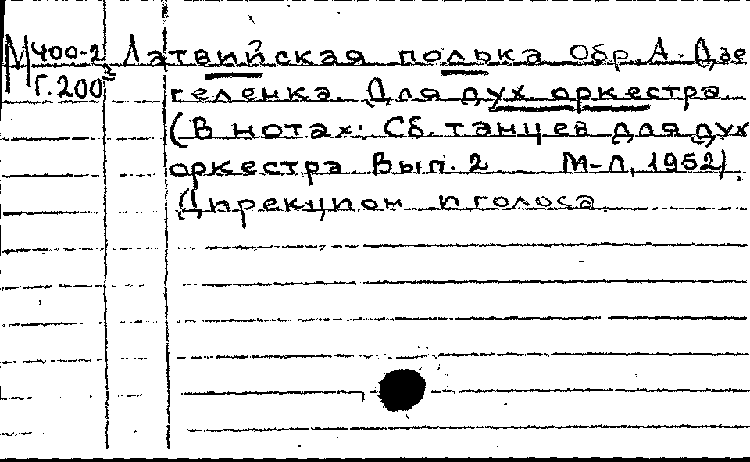 М 400-2 Латвийская полька Обр. А. Дзе
Г. 200³ геленка. Для дух оркестра.
(В нотах: Сб. танцев для дух
оркестра Вып. 2 М-Л, 1952).
Дирекцион и голоса.